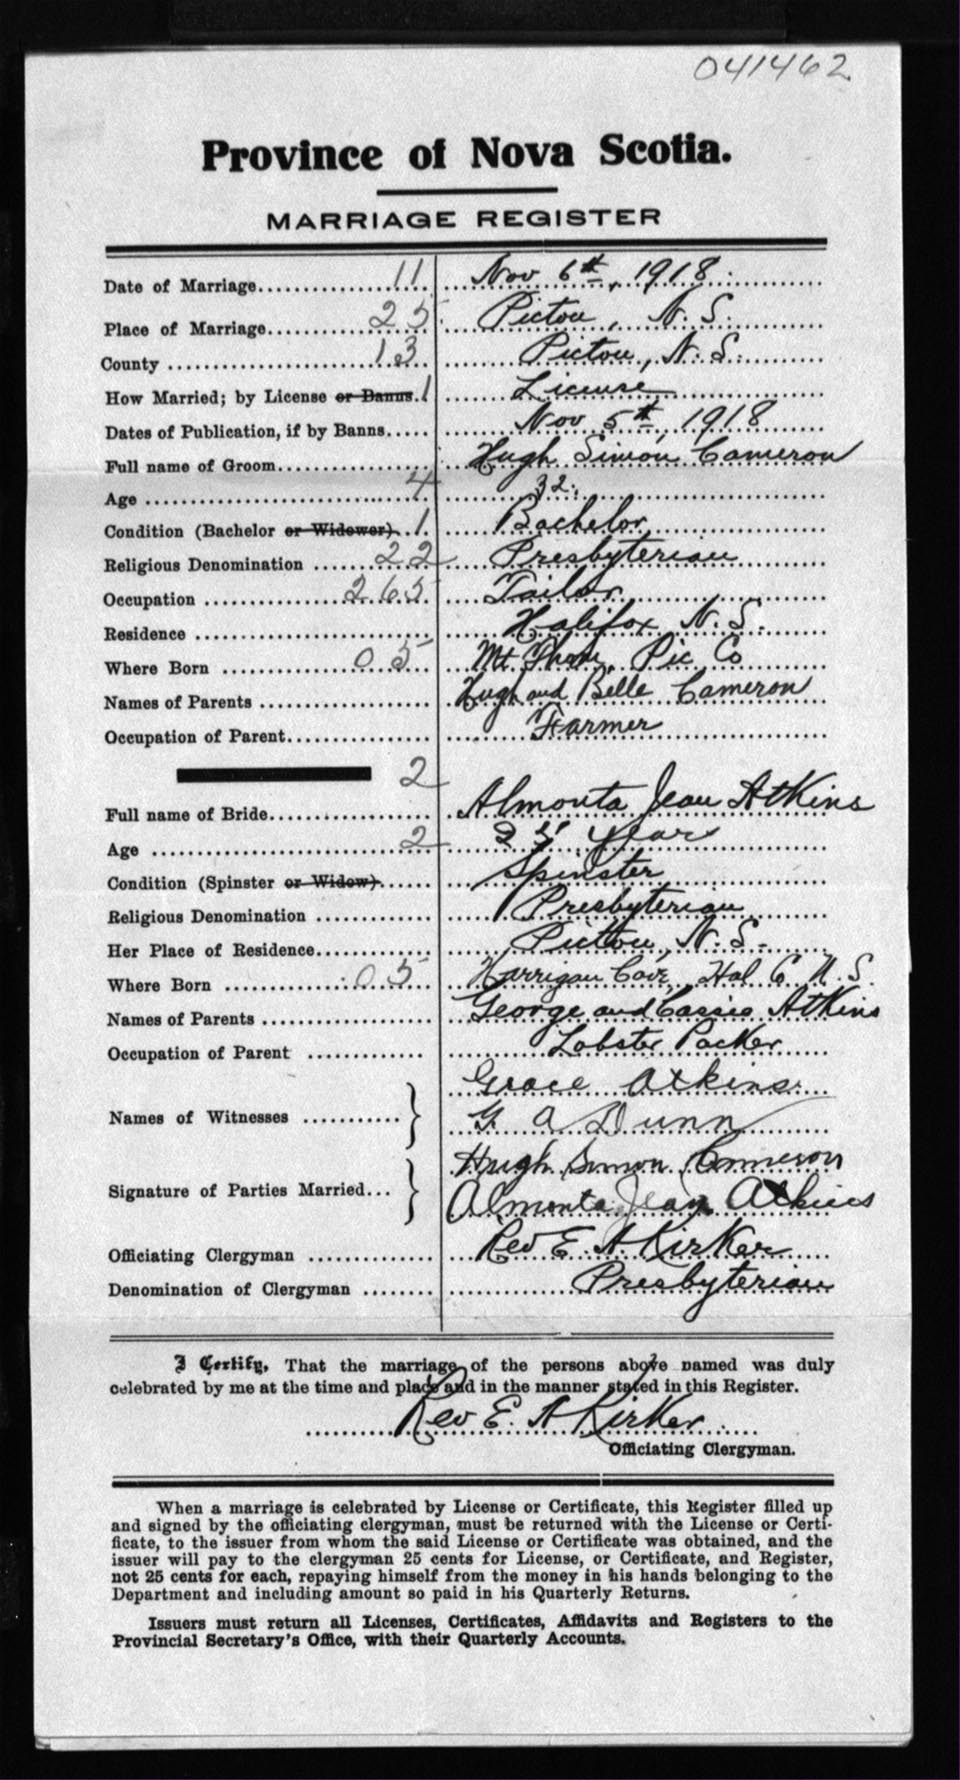 041462
Province of Nova Scotia.
MARRIAGE REGISTER
Date of Marriage 11 Nov 6th, 1918.
Place of Marriage 25 Pictou, N. S.
County 13 Pictou, N. S.
How Married; by License or Banns. 1 License
Dates of Publication, if by Banns Nov 5th, 1918
Full name of Groom Hugh Simon Cameron
Age 4 32.
Condition (Bachelor or Widower) 1. Bachelor
Religious Denomination 22 Presbyterian
Occupation 265 Tailor
Residence Halifax N. S.
Where Born 05 Mt. Thom, Pic Co
Names of Parents Hugh and Belle Cameron
Occupation of Parent Farmer
2
Full name of Bride Almonta Jean Atkins
Age 2 years
Condition (Spinster or Widow) Spinster
Religious Denomination Presbyterian
Her Place of Residence Pictou, N. S.
Where Born 05 Harrigan Cove, Hal Co N. S.
Names of Parents George and Cassie Atkins
Occupation of Parent Lobster Packer
Names of Witnesses Grace Atkins.
G A Dunn
Signature of Parties Married... Hugh Simon Cameron
Almonta Jean Atkins
Officiating Clergyman Rev E. A. Kirker
Denomination of Clergyman Presbyterian
I Certify, That the marriage of the persons above named was duly
celebrated by me at the time and place and in the manner stated in this Register.
Rev E. A Kirker
Officiating Clergyman.
When a marriage is celebrated by License or Certificate, this Register filled up
and signed by the officiating clergyman, must be returned with the License or Certi-
ficate, to the issuer from whom the said License or Certificate was obtained, and the
issuer will pay to the clergyman 25 cents for License, or Certificate, and Register,
not 25 cents for each, repaying himself from the money in his hands belonging to the
Department and including amount so paid in his Quarterly Returns.
Issuers must return all Licenses, Certificates, Affidavits and Registers to the
Provincial Secretary's Office, with their Quarterly Accounts.